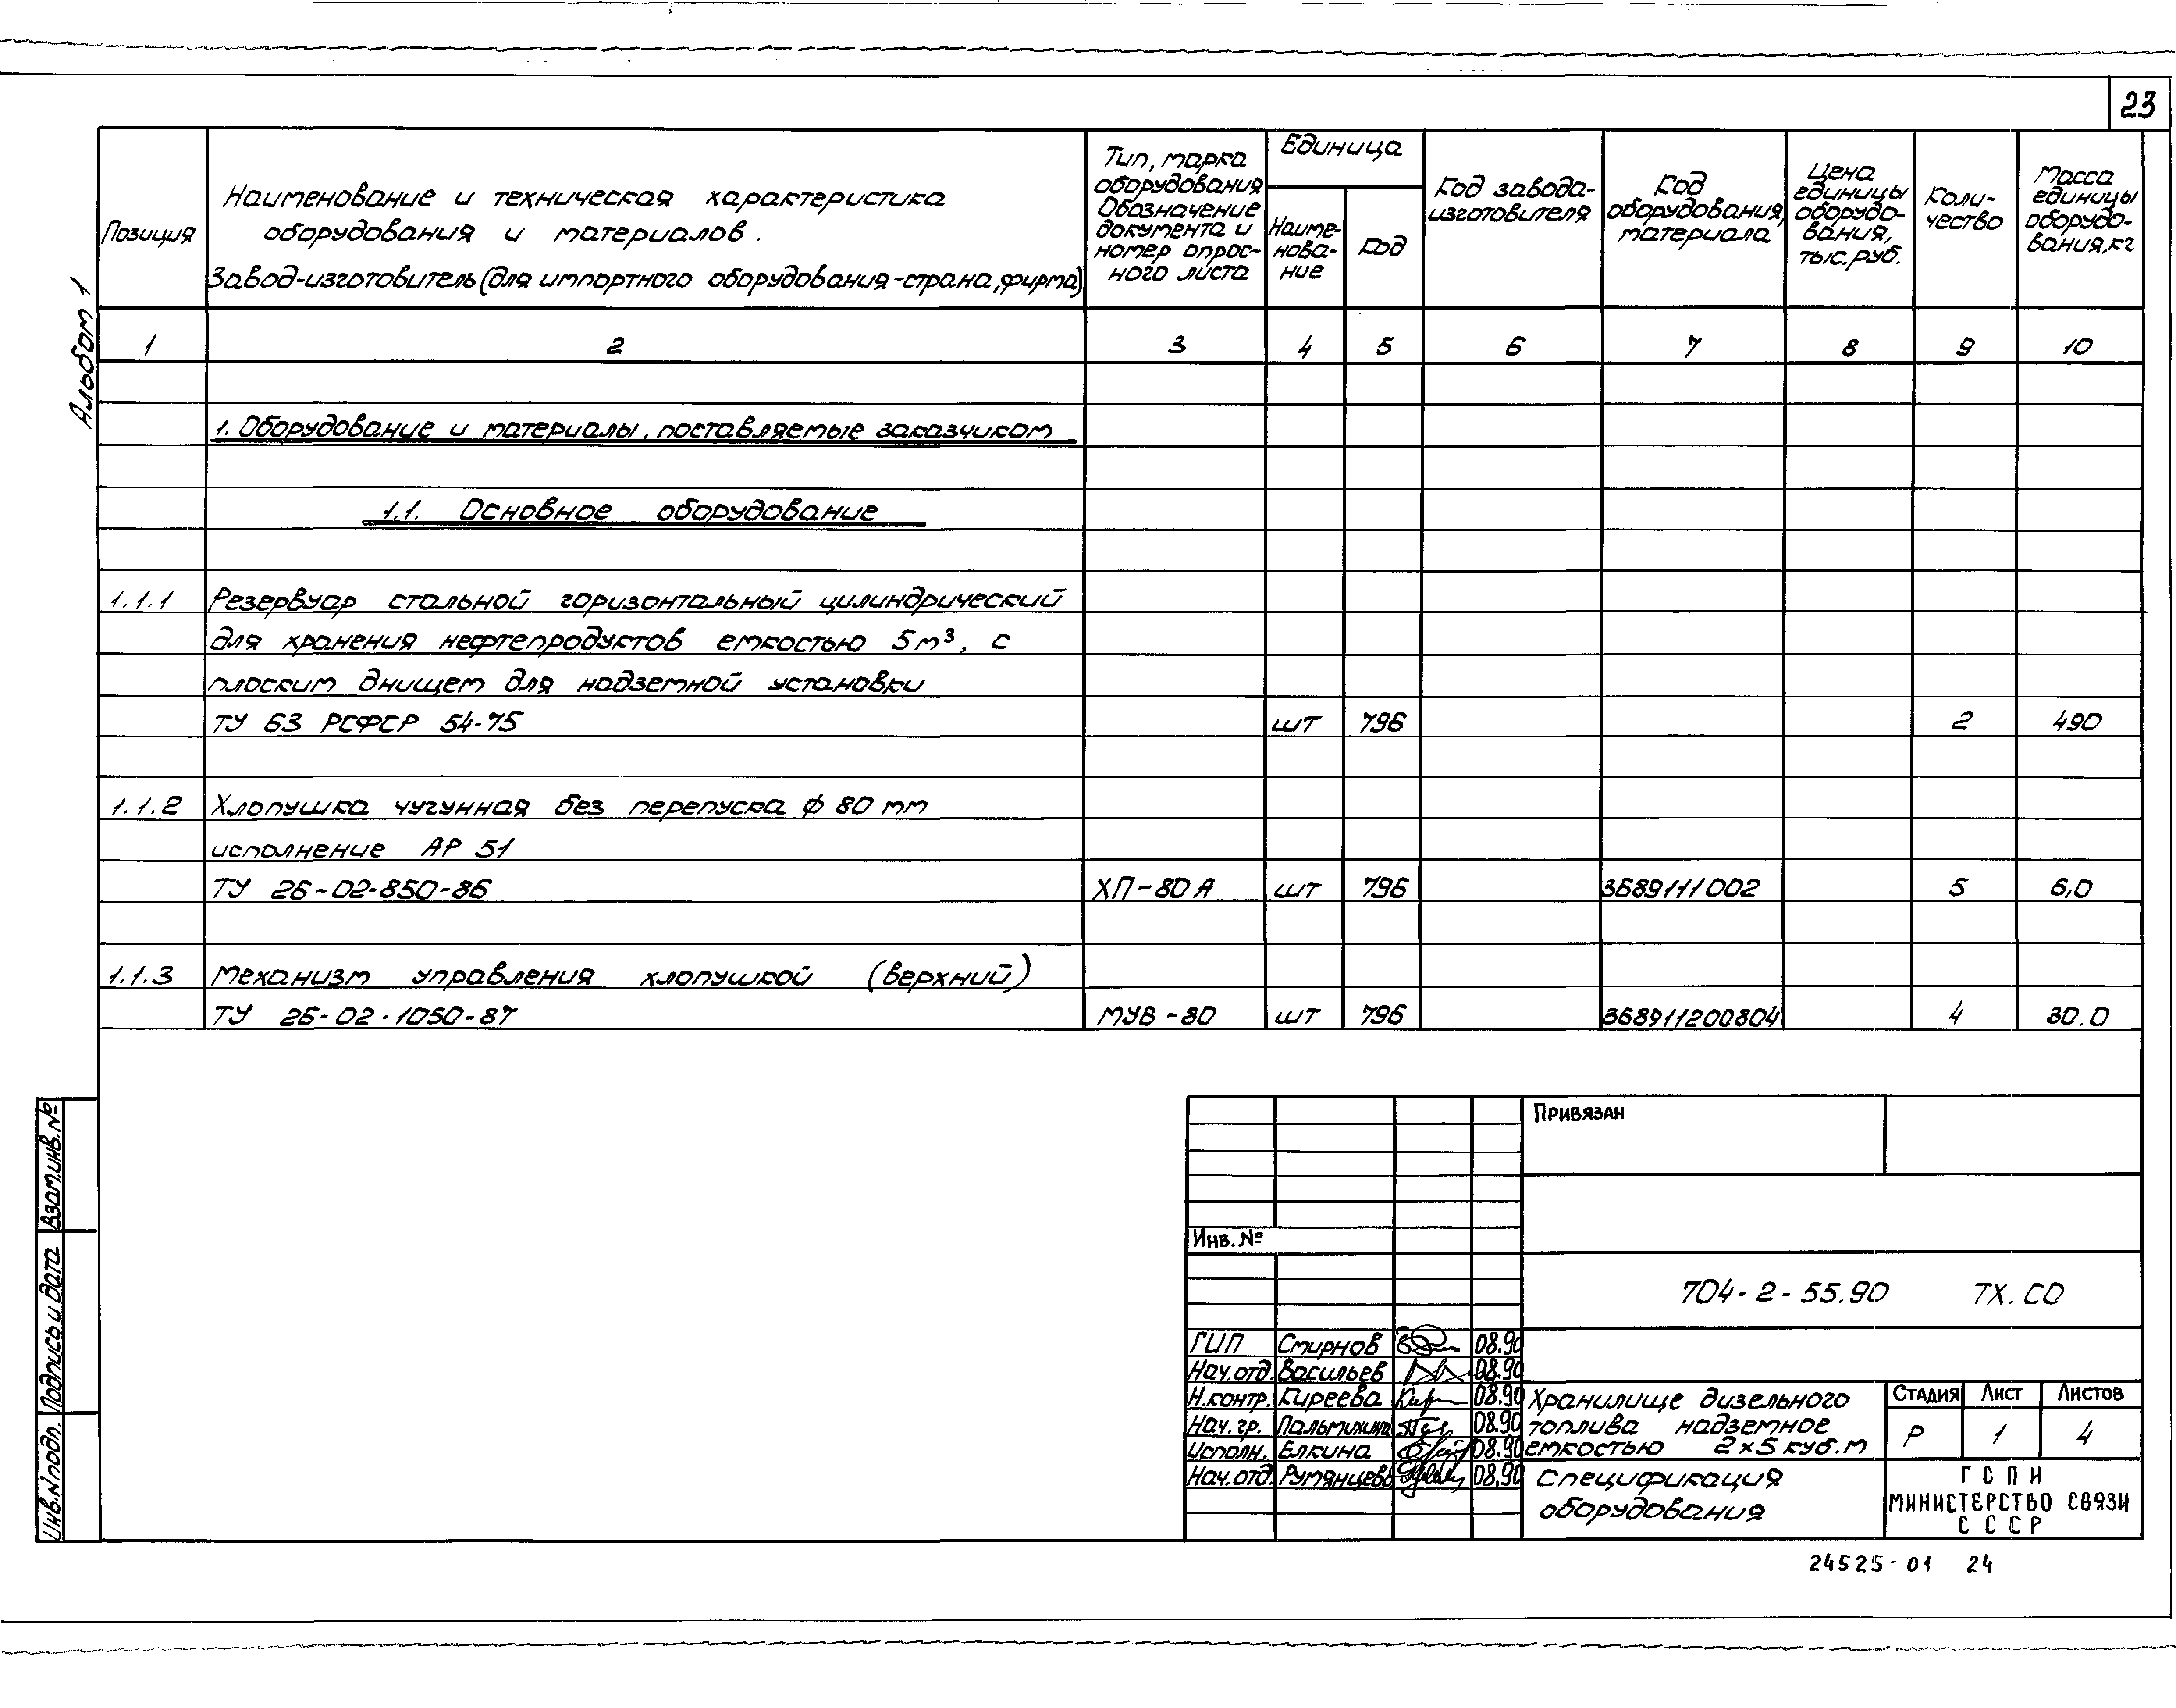 23
Альбом 1
Позиция
Наименование и техническая характеристика
оборудования и материалов.
Завод-изготовитель (для импортного оборудования-страна, фирма)
Тип, марка
оборудования
Обозначение
документа и
номер опрос-
ного листа
Единица
Наиме-
нова-
ние
Код
Код завода-
изготовителя
Код
оборудования,
материала
Цена
единицы
оборудо-
вания,
тыс.руб.
Коли-
чество
Масса
единицы
оборудо-
вания,кг
1 2 3 4 5 6 7 8 9 10
1. Оборудование и материалы, поставляемые заказчиком
1.1. Основное оборудование
1.1.1 Резервуар стальной горизонтальный цилиндрический
для хранения нефтепродуктов емкостью 5м³, с
плоским днищем для надземной установки
ТУ 63 РСФСР 54-75 шт 796 2 490
1.1.2 Хлопушка чугунная без перепуска ф 80 мм
исполнение АР 51
ТУ 26-02-850-86 ХП-80А шт 796 3689111002 5 6,0
1.1.3 Механизм управления хлопушкой (верхний)
ТУ 26-02-1050-87 МУВ-80 шт 796 368911200804 4 30.0
Взам.инв.№
Подпись и дата
Инв.№подл.
Привязан
Инв. №
704-2-55.90 ТХ.СО
ГИП Смирнов 08.90
Нач.отд. Васильев 08.90
Н.контр. Киреева 08.90
Нач.гр. Пальмихина 08.90
Исполн. Елкина 08.90
Нач.отд. Румянцева 08.90
Хранилище дизельного
топлива надземное
емкостью 2х5 куб.м
Стадия Лист Листов
Р 1 4
Спецификация
оборудования
ГСПИ
МИНИСТЕРСТВО СВЯЗИ
СССР
24525-01 24